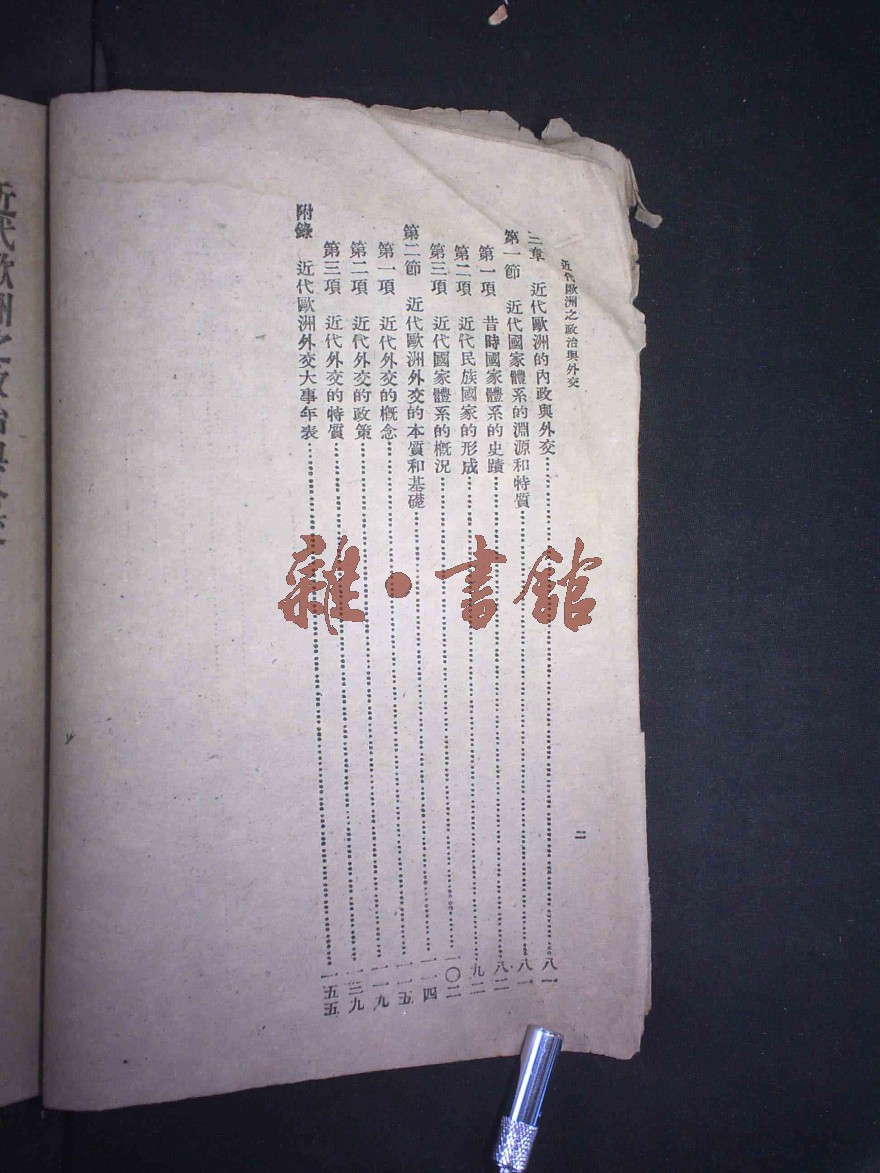 近代歐洲之政治與外交
二
三章 近代歐洲的內政與外交……八一
第一節 近代國家體系的淵源和特質……八一
第一項 昔時國家體系的史蹟……八二
第二項 近代民族國家的形成……九二
第三項 近代國家體系的概況……一〇二
第二節 近代歐洲外交的本質和基礎……一一四
第一項 近代外交的概念……一一五
第二項 近代外交的政策……一一九
第三項 近代外交的特質……一三九
附錄 近代歐洲外交大事年表……一五五
近代歐洲之政治與外交
雜·書館